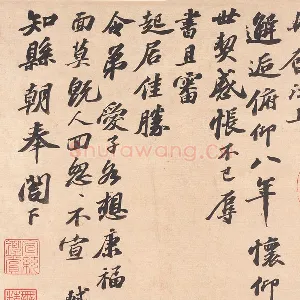 江上
邂逅俯仰八年懷仰
世契感悵不已辱
書且審
起居佳勝
令弟愛子各想康福
面莫既人回怱〻不宣 軾
知縣朝奉閣下